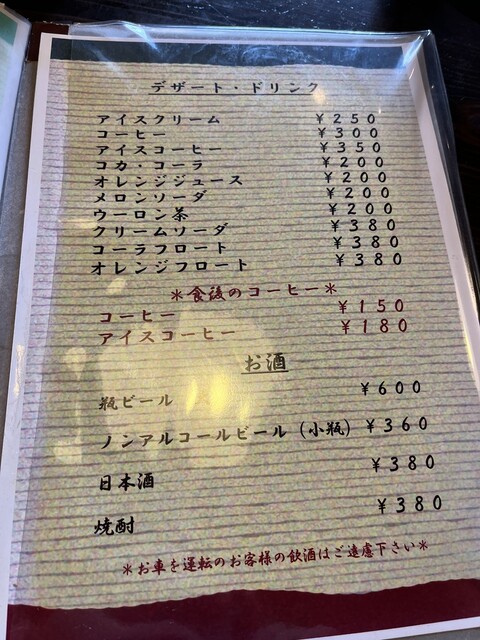 デザート・ドリンク
アイスクリーム ￥２５０
コーヒー ￥３００
アイスコーヒー ￥３５０
コカ・コーラ ￥２００
オレンジジュース ￥２００
メロンソーダ ￥２００
ウーロン茶 ￥２００
クリームソーダ ￥３８０
コーラフロート ￥３８０
オレンジフロート ￥３８０
＊食後のコーヒー＊
コーヒー ￥１５０
アイスコーヒー ￥１８０
お酒
瓶ビール ￥６００
ノンアルコールビール（小瓶） ￥３６０
日本酒 ￥３８０
焼酎 ￥３８０
＊お車を運転のお客様の飲酒はご遠慮下さい＊